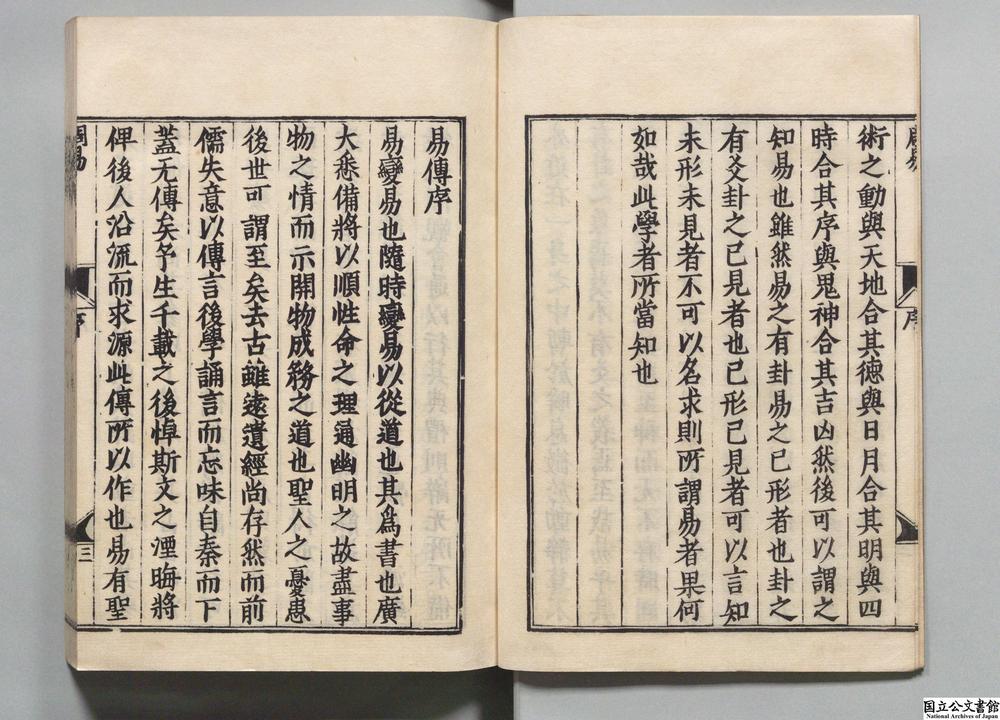 周易
序
術之動與天地合其徳與日月合其明與四
時合其序與鬼神合其吉凶然後可以謂之
知易也雖然易之有卦易之已形者也卦之
有爻卦之已見者也已形已見者可以言知
未形未見者不可以名求則所謂易者果何
如哉此學者所當知也
易傳序
易變易也隨時變易以從道也其爲書也廣
大悉備將以順性命之理通幽明之故盡事
物之情而示開物成務之道也聖人之憂患
後世可謂至矣去古雖遠遺經尚存然而前
儒失意以傳言後學誦言而忘味自秦而下
蓋无傳矣予生千載之後悼斯文之湮晦將
俾後人沿流而求源此傳所以作也易有聖
周易
序
三
国立公文書館
National Archives of Japan